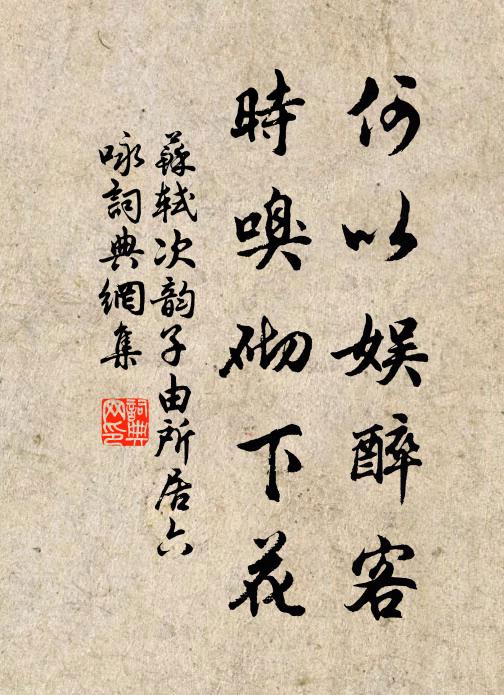 何以娱醉客
時嗅砌下花
蘇軾次韵子由所居六
咏詞典網集
詞典网印